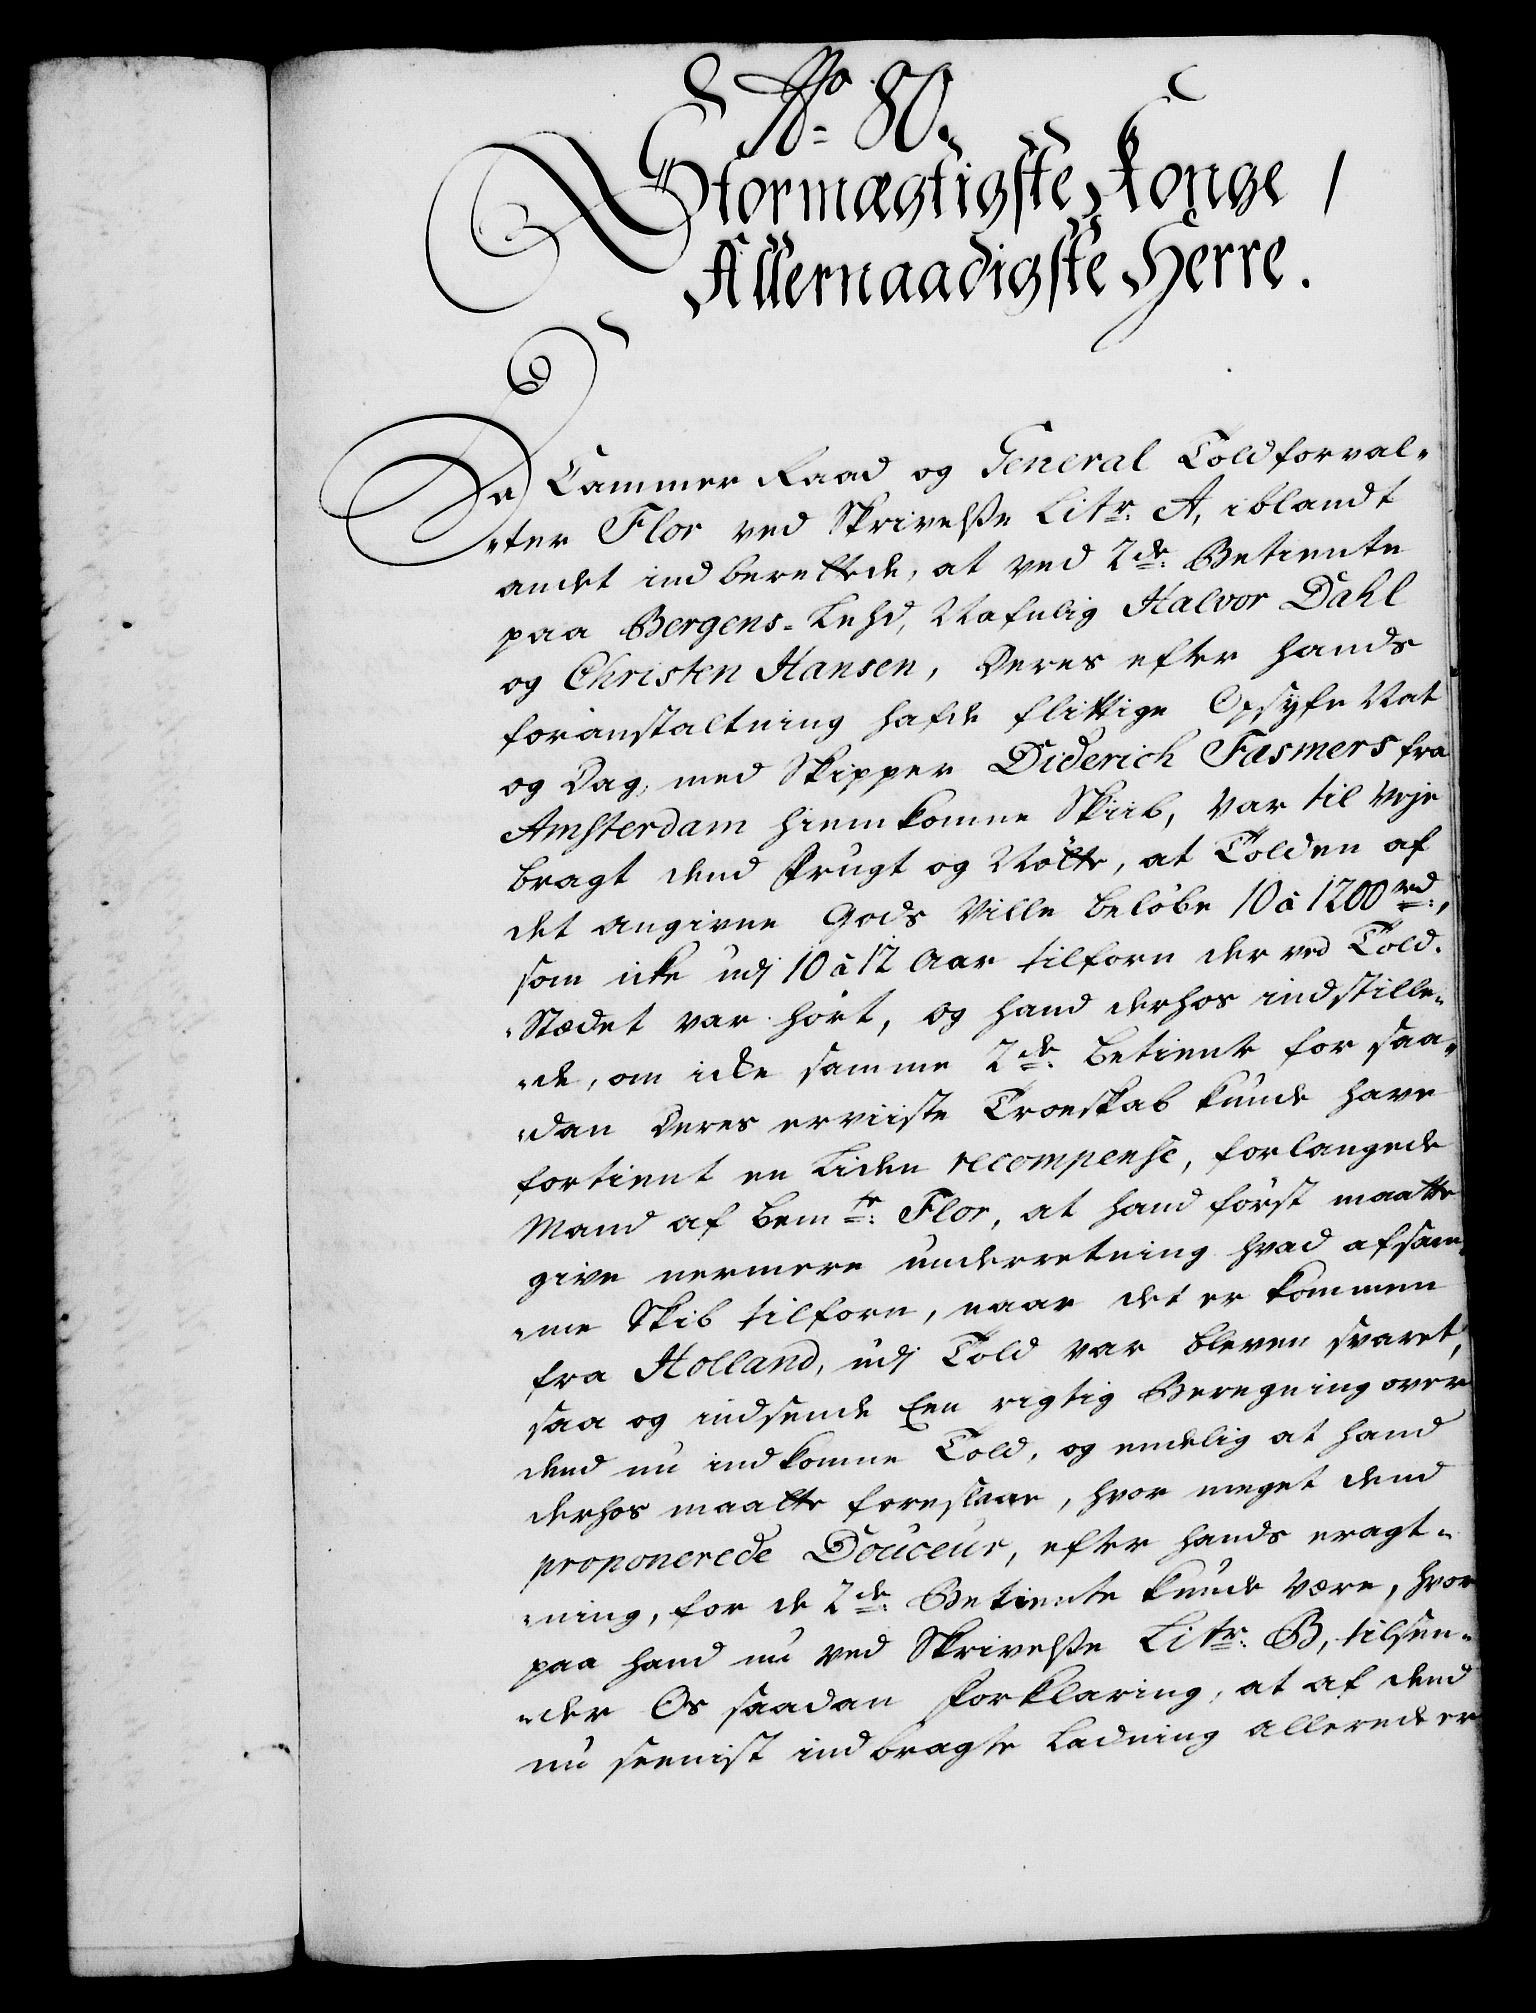 No. 80.
Stormægtigste Konge /
Allernaadigste Herre.
Da Cammer Raad og General Toldforval-
-ter Flor ved Skrivelsse Litr. A, iblandt
andet indberettede, at ved 2de. Betiente
paa Bergens-Lehd, Nafnlig Halvor Dahl
og Christen Hansen, deres efter hands
foranstaltning hafde flittige Opsyn Nat
og Dag, med Skipper Diderich Fæsmers fra
Amsterdam hiemkomne Skiib, var til veje
bragt dend Frugt og Nötte, at Tolden af
det angivne Gods Ville belöbe 10 à 1200 rd.,
som icke udj 10 à 12 Aar tilforn der ved Told-
-Stædet var hört, og hand derhos indstille-
-de, om icke samme 2de. Betiente for saa-
-dan deres erviiste Troeskab kunde have
fortient en Liden recompense, forlangede
Mand af bemte. Flor, at hand först maatte
give nermere underretning hvad af sam-
-me Skib tilforn, naar det er kommen
fra Holland, udj Told var bleven svaret,
saa og indsende Een rigtig Beregning over
dend nu indkomne Told, og endelig at hand
derhos maatte foreslaae, hvor meget dend
proponerede Douceur, efter hands eragt-
-ning, for de 2de. Betiente kunde være, hvor
paa hand nu ved Skrivelsse Litr. B, tilsen-
-der Os saadan Forklaring, at af dend
nu seenist indbragte Ladning allerede er